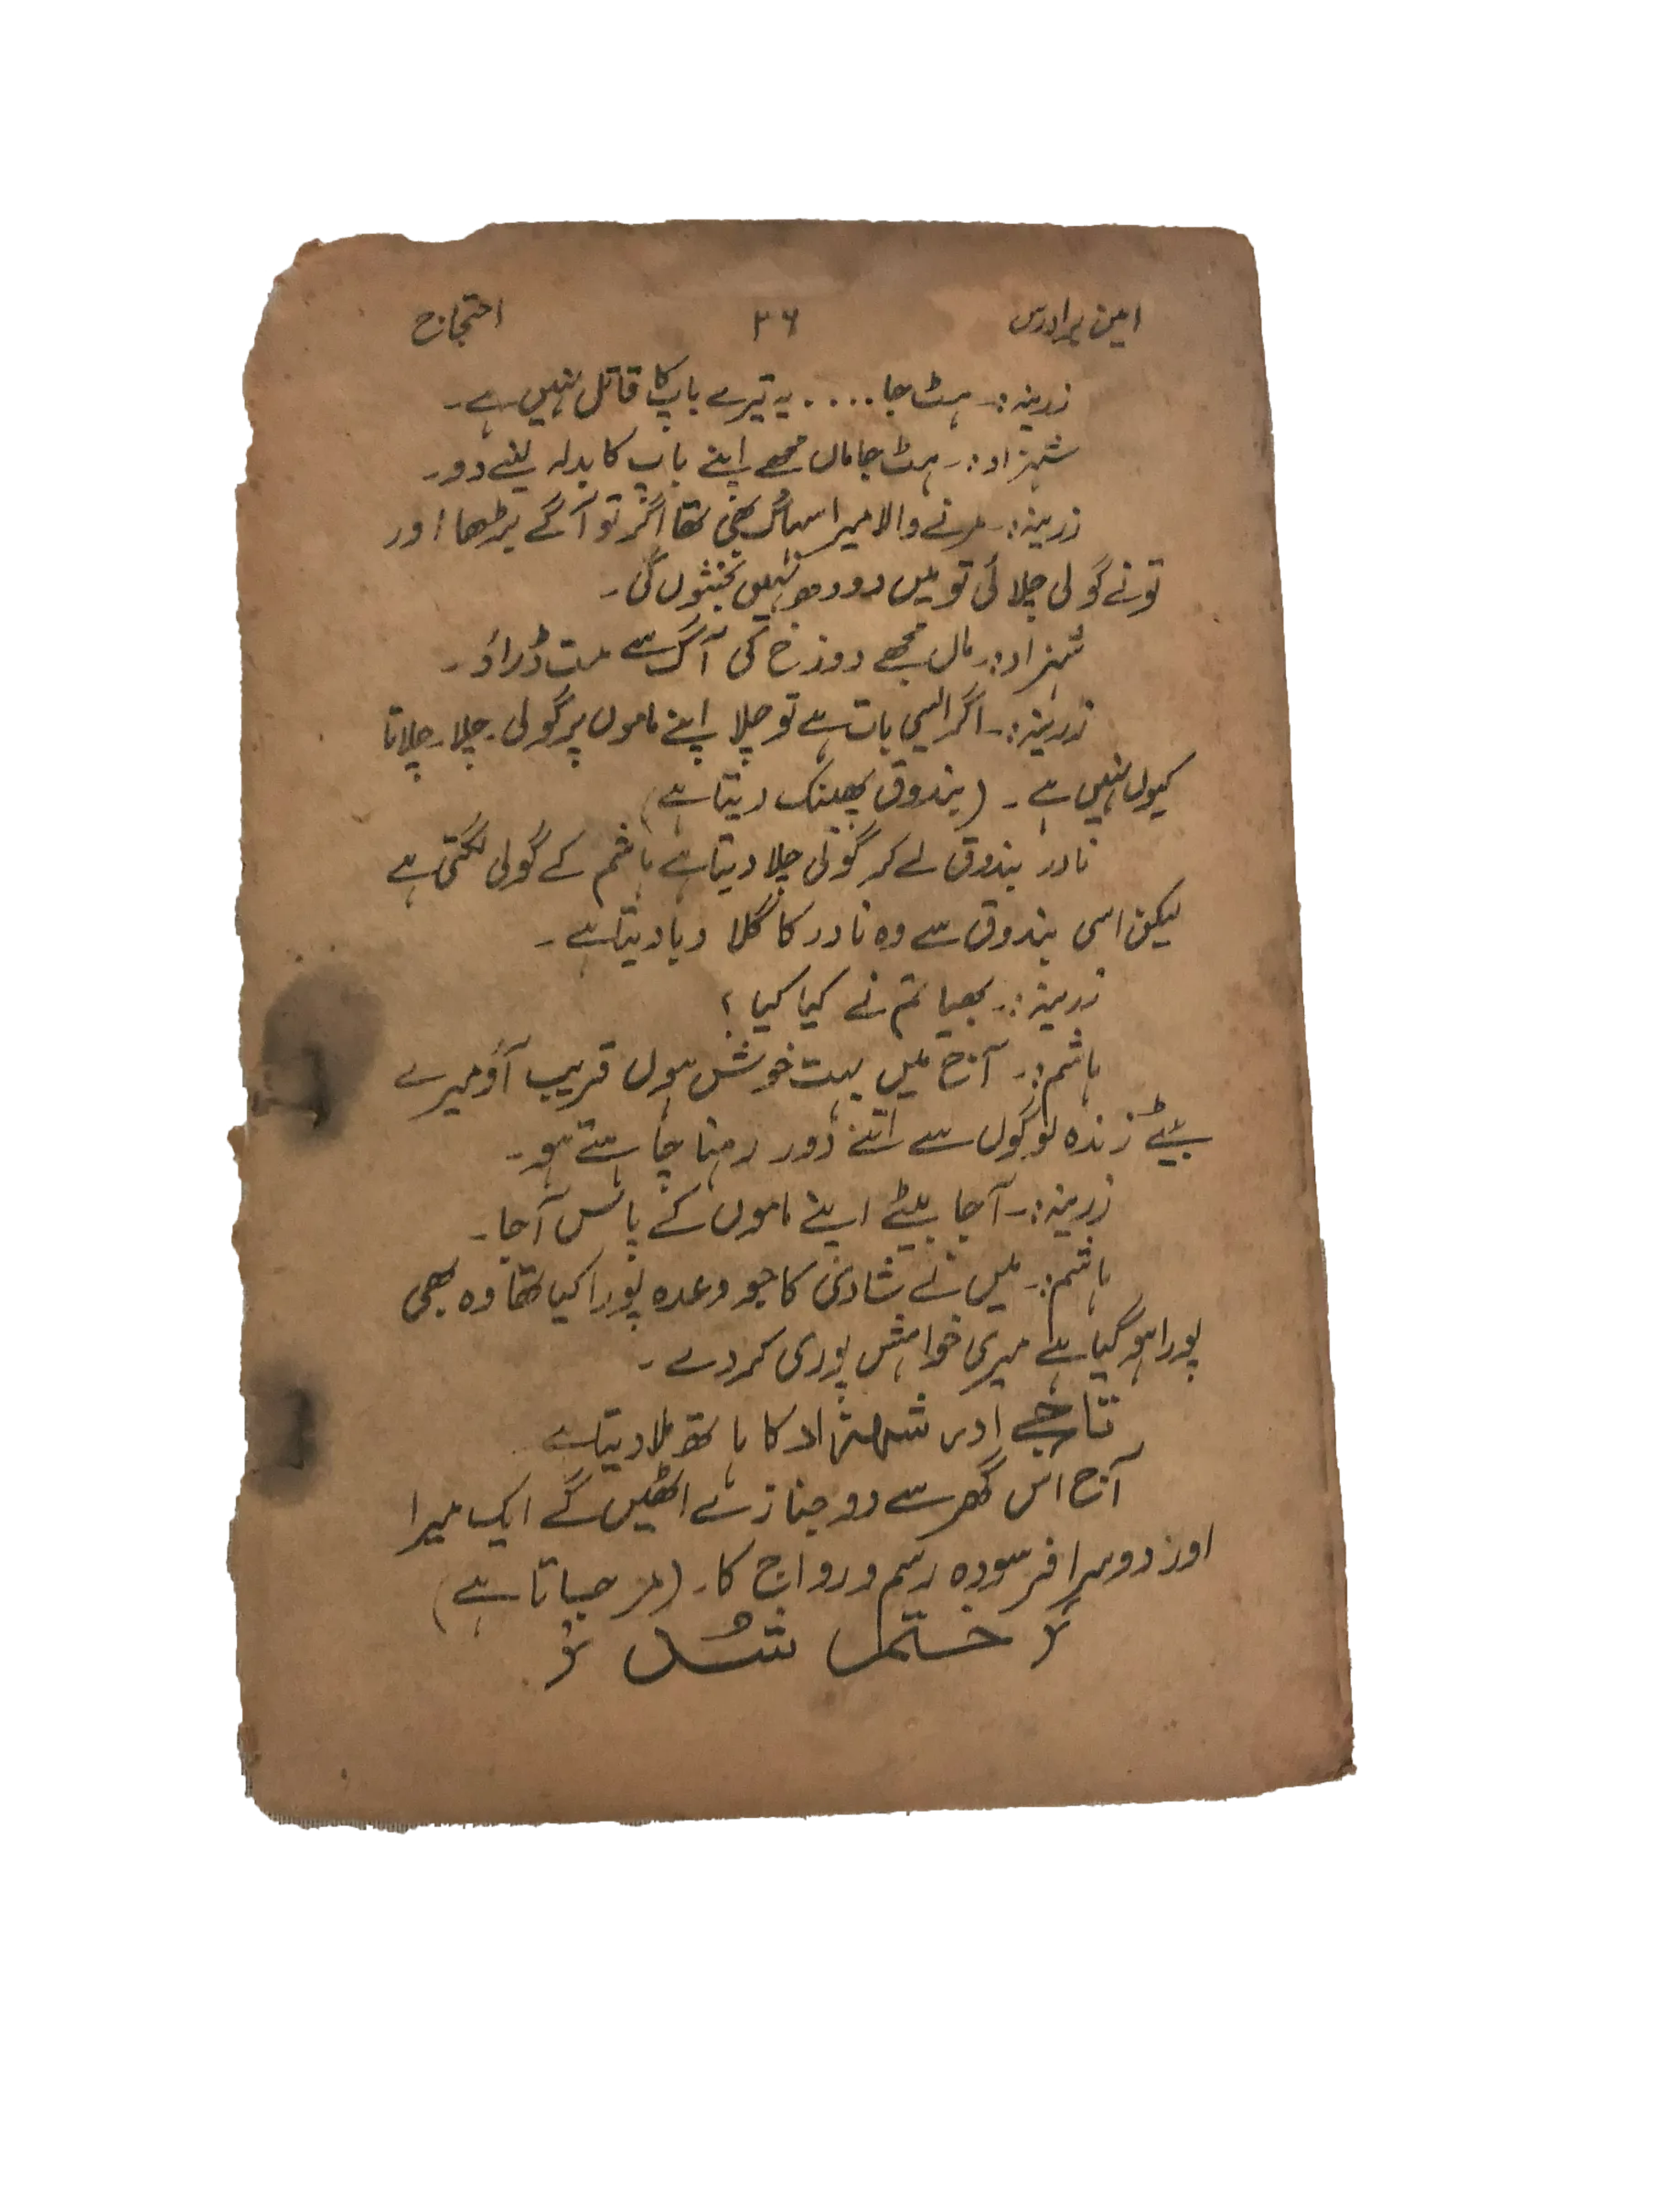 امین برادرس ۳۶ احتجاج
زرینہ:۔ ہٹ جا . . . . یہ تیرے باپ کا قاتل نہیں ہے۔
شہزاد:۔ ہٹ جا ماں مجھے اپنے باپ کا بدلہ لینے دو۔
زرینہ:۔ مرنے والا میرا سہاگ بھی تھا اگر تو آگے بڑھا اور
تونے گولی چلائی تو میں دودھ نہیں بخشوں گی۔
شہزاد:۔ ماں مجھے دوزخ کی آگ سے مت ڈراؤ۔
زرینہ:۔ اگر ایسی بات ہے تو چلا اپنے ماموں پر گولی۔ چلا۔ چلاتا
کیوں نہیں ہے۔ (بندوق پھینک دیتا ہے)
نادر بندوق لے کر گولی چلا دیتا ہے ہاشم کے گولی لگتی ہے
لیکن اسی بندوق سے وہ نادر کا گلا دبا دیتا ہے۔
زرینہ:۔ بھیا تم نے کیا کیا ؟
ہاشم:۔ آج میں بہت خوش ہوں قریب آؤ میرے
بیٹے زندہ لوگوں سے اتنے دور رہنا چاہتے ہو۔
زرینہ:۔ آجا بیٹے اپنے ماموں کے پاس آجا۔
ہاشم:۔ میں نے شادی کا جو وعدہ پورا کیا تھا وہ بھی
پورا ہوگیا ہے میری خواہش پوری کردے۔
تاجے اور شہزاد کا ہاتھ ملا دیتا ہے
آج اس گھر سے دو جنازے اٹھیں گے ایک میرا
اور دوسرا فرسودہ رسم و رواج کا۔ (مر جاتا ہے)
ختم شد